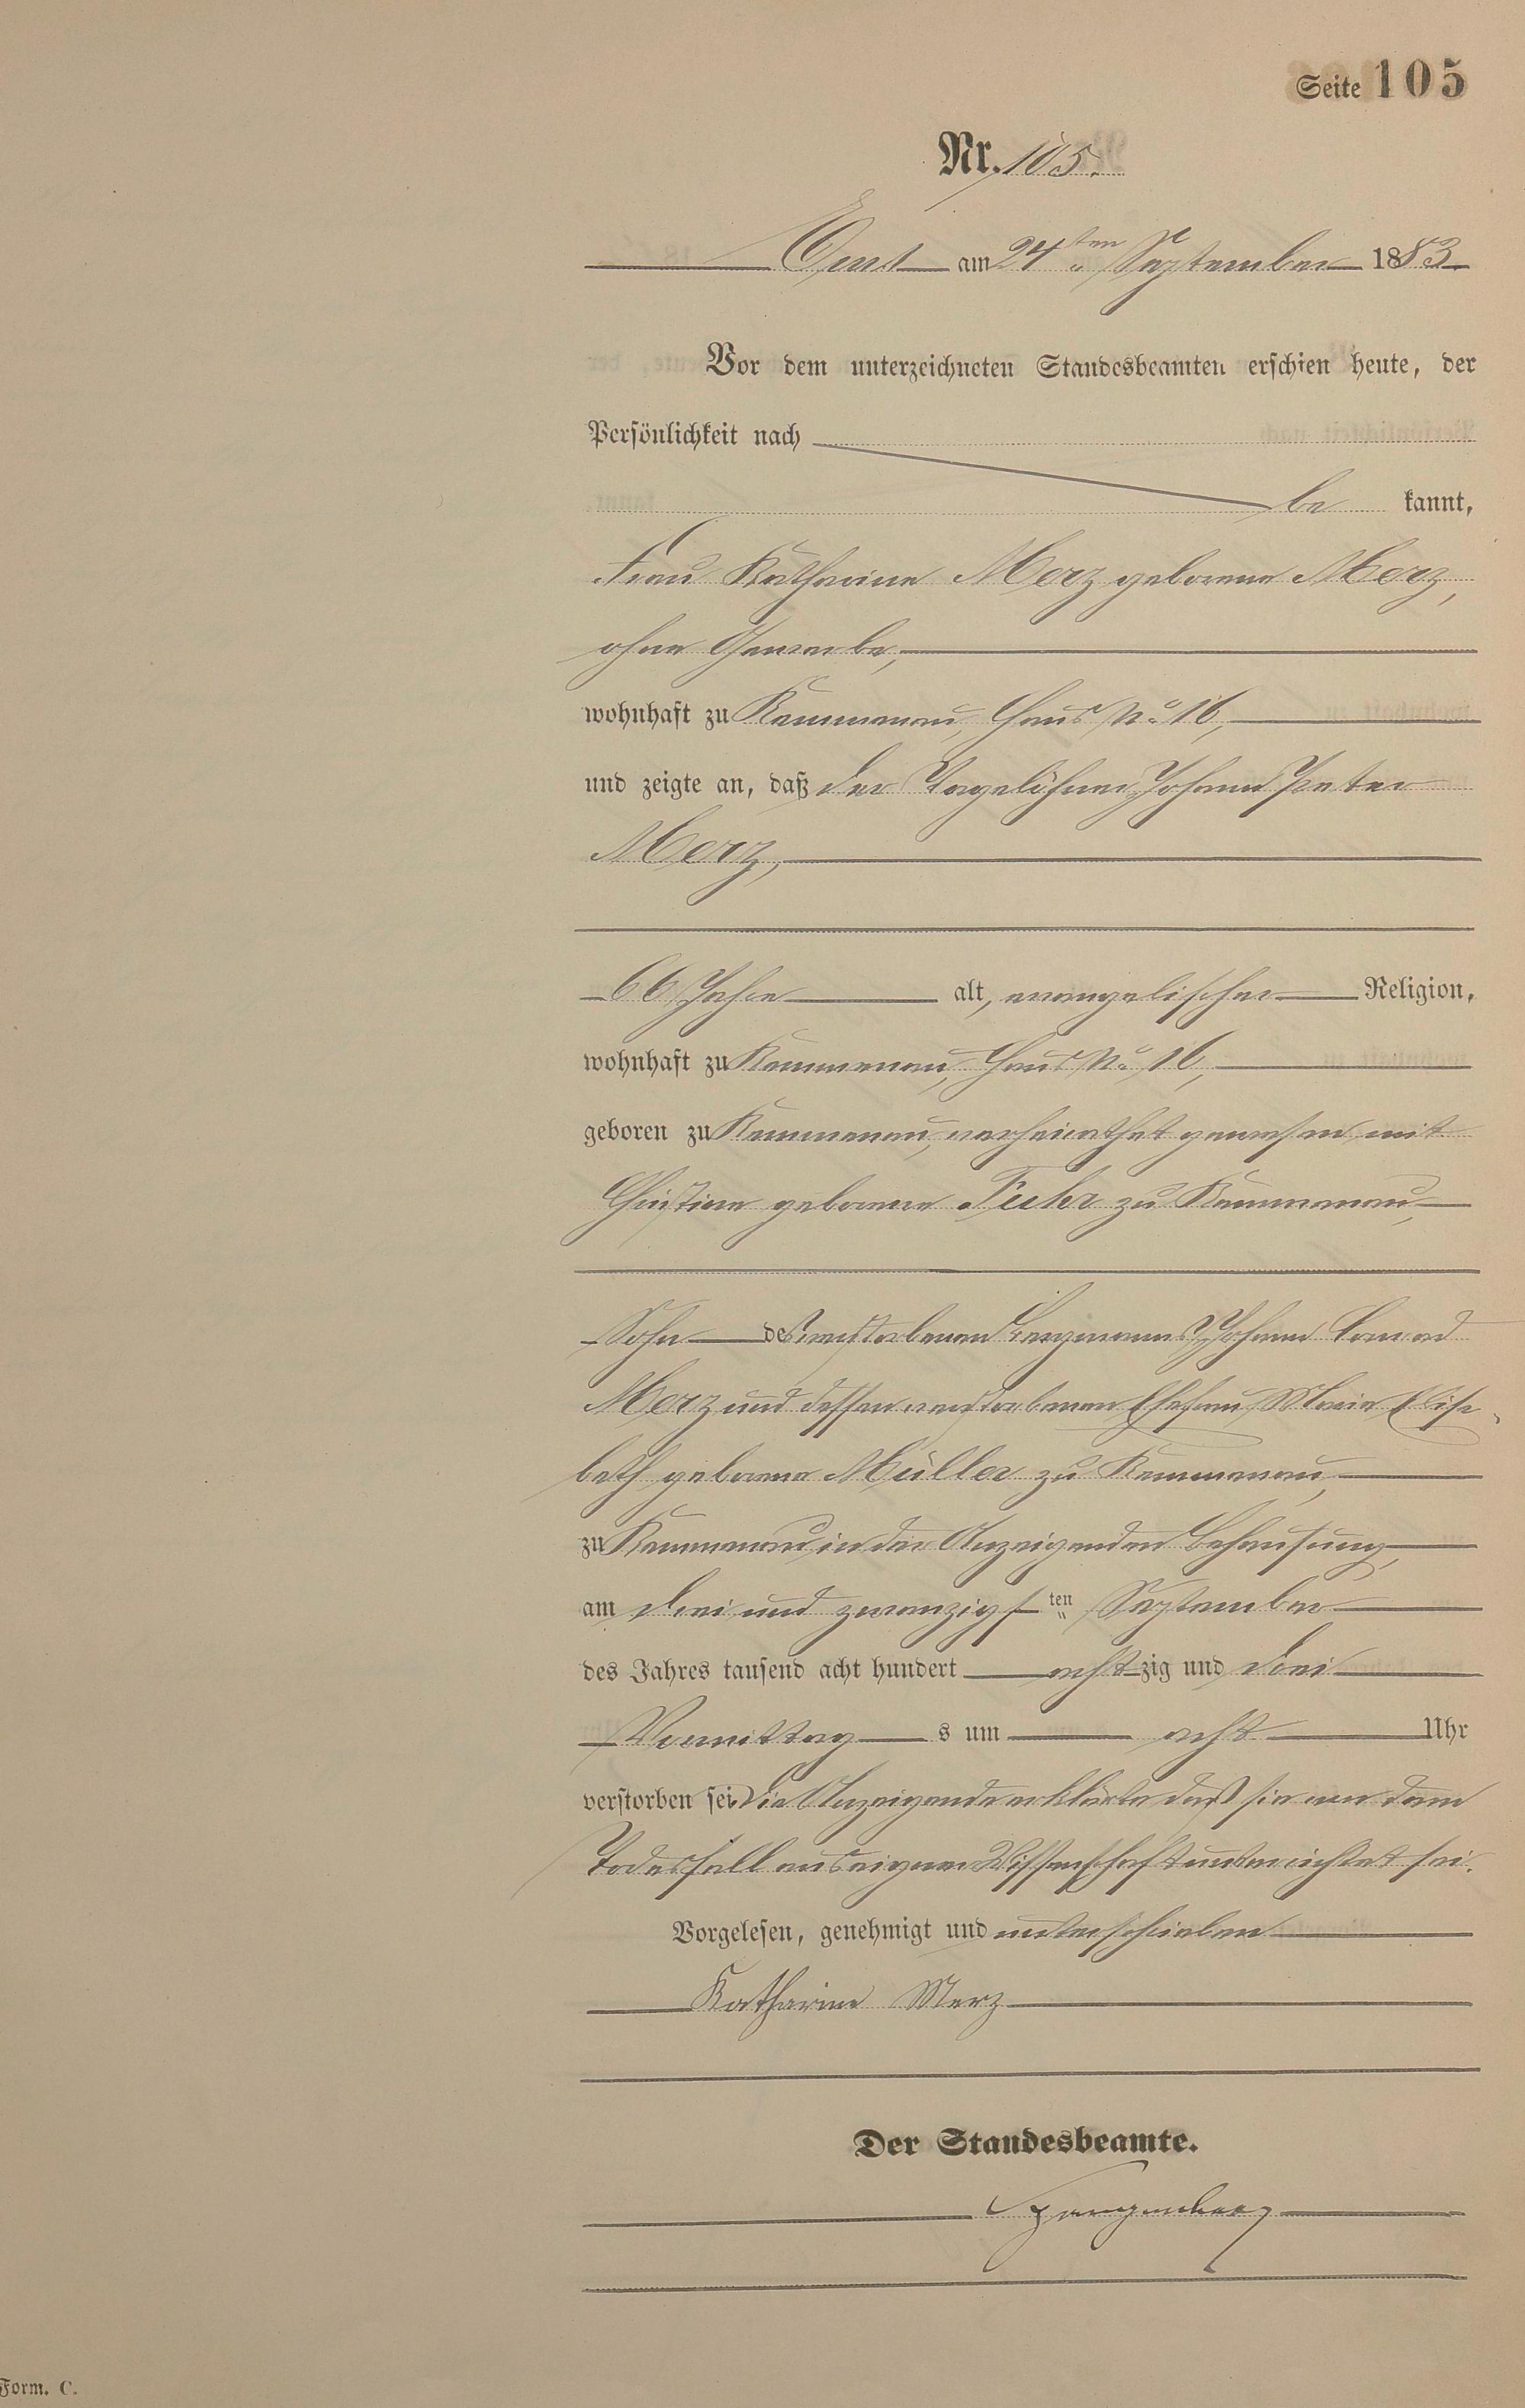 Seite 105
Nr. 105.
Ems am 24ten September 1883
Vor dem unterzeichneten Standesbeamten erschien heute, der
Persönlichkeit nach
be kannt,
Frau Katharine Merz geborene Merz,
ohne Gewerbe,
wohnhaft zu Kemmenau, Haus No 16,
und zeigte an, daß der Tagelöhner Johann Peter
Merz,
66 Jahre alt, evangelischer Religion,
wohnhaft zu Kemmenau, Haus No 16,
geboren zu Kemmenau, verheirathet gewesen mit
Christine geborene Fuhr zu Kemmenau,
Sohn des verstorbenen Bergmanns Johann Conrad
Merz und dessen verstorbenen Ehefrau Marie Elisa-
beth geborene Müller zu Kemmenau,
zu Kemmenau in der Anzeigenden Behausung,
am drei und zwanzigsten September
des Jahres tausend acht hundert achtzig und drei
Vormittags um acht Uhr
verstorben sei. Die Anzeigende erklärte daß sie von dem
Todesfall aus eigener Wissenschaft unterrichtet sei.
Vorgelesen, genehmigt und unterschrieben
Katharine Merz
Der Standesbeamte.
Spangenberg
Form. C.